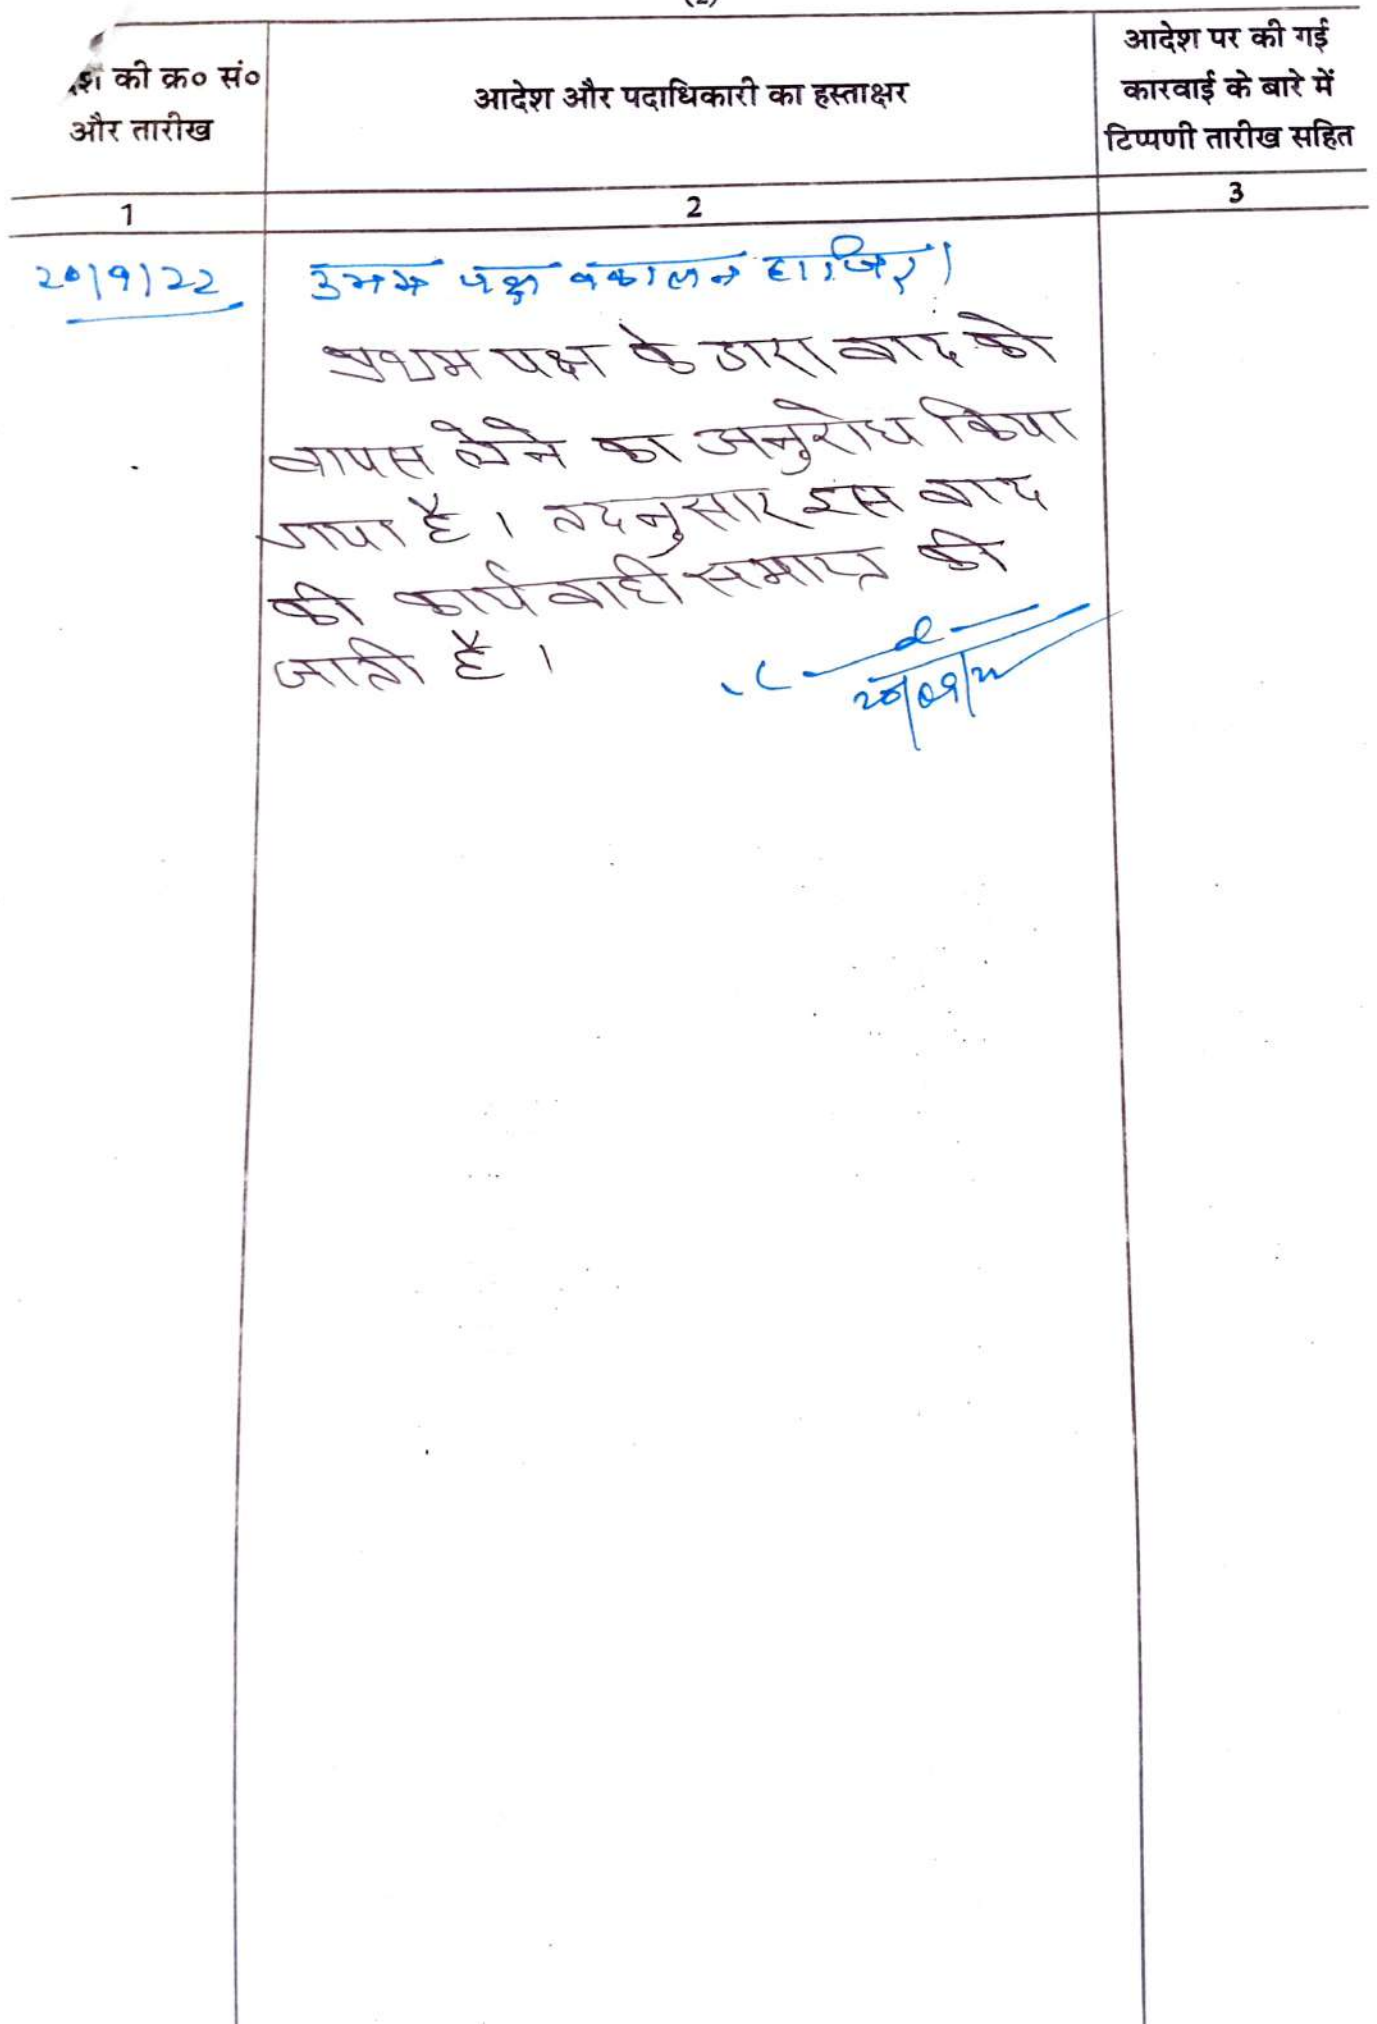 (2)
आदेश की क्र० सं०
और तारीख
आदेश और पदाधिकारी का हस्ताक्षर
आदेश पर की गई
कारवाई के बारे में
टिप्पणी तारीख सहित
1
2
3
20/9/22
उभय पक्ष वकालतन हाजिर।
प्रथम पक्ष के द्वारा वाद को
वापस लेने का अनुरोध किया
गया है। तदनुसार इस वाद
की कार्यवाही समाप्त की
जाती है।
20/09/22